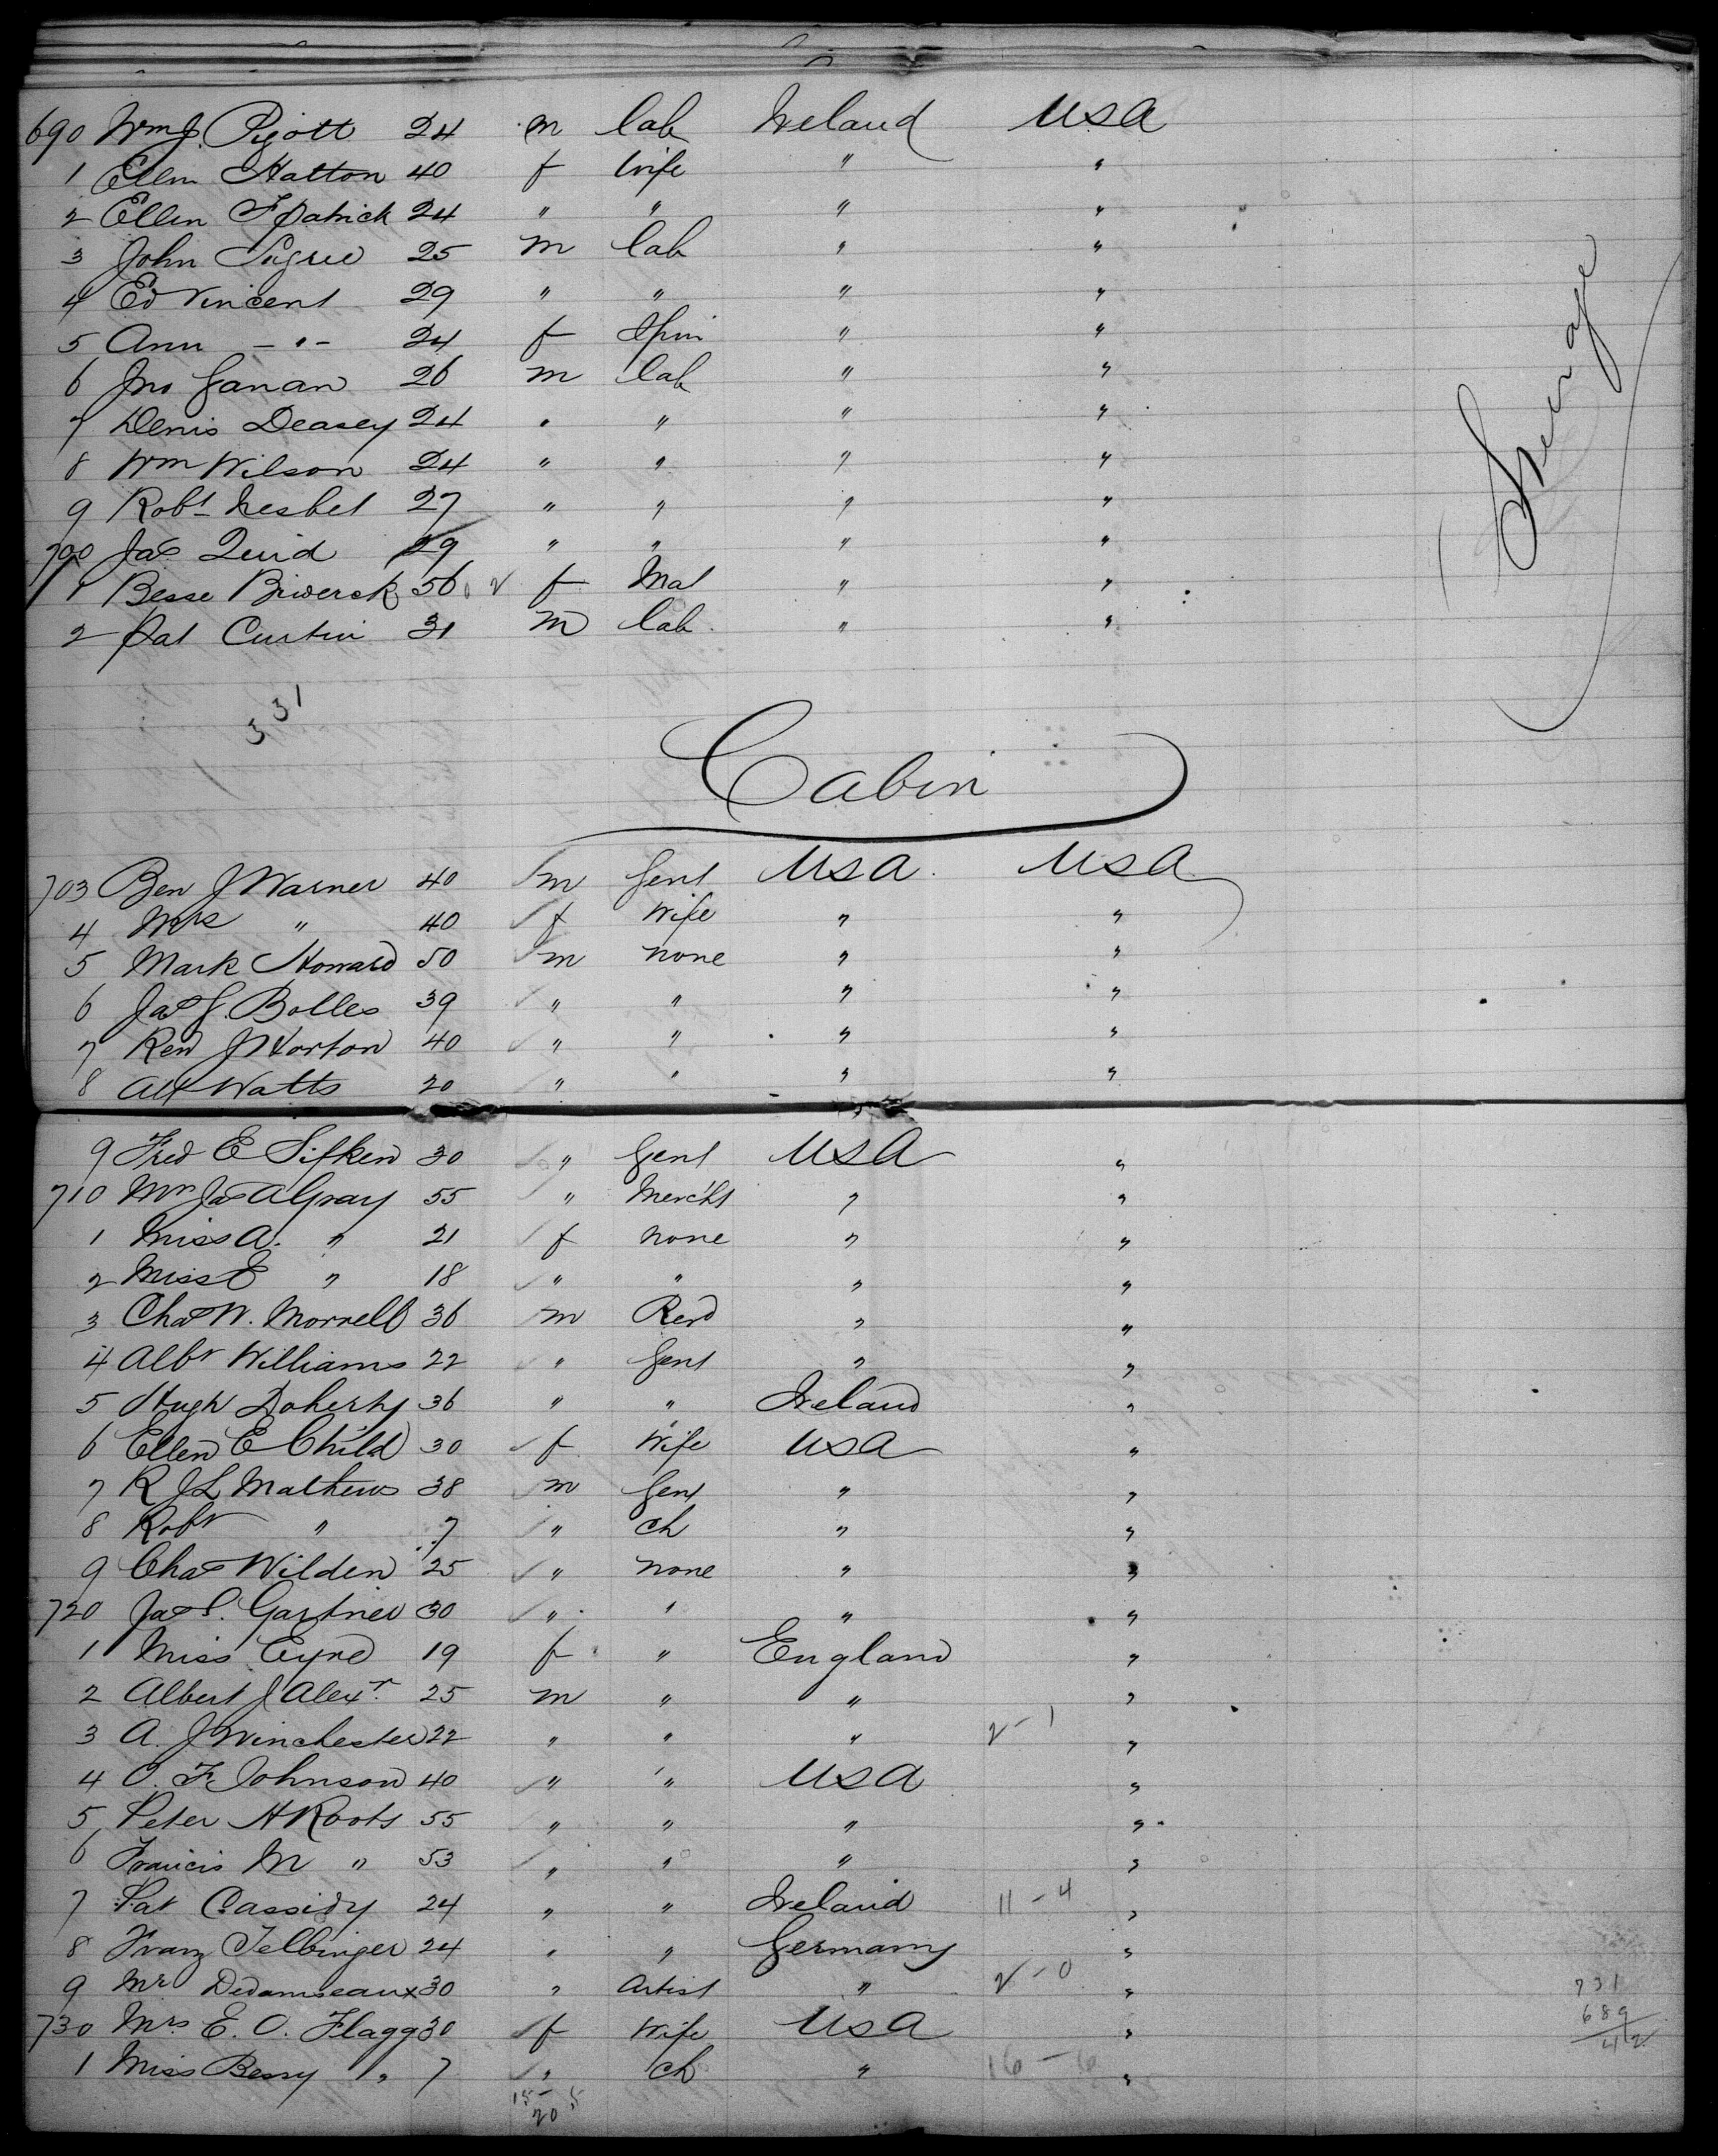 690 Wm J. Pigott 24 m lab Ireland USA
1 Ellen Hatton 40 f Wife " "
2 Ellen Fpatrick 24 " " " "
3 John Sugrue 25 m lab " "
4 Ed Vincent 29 " " " "
5 Ann - " - 24 f Spin " "
6 Jno Ganan 26 m lab " "
7 Denis Deasey 24 " " " "
8 Wm Wilson 24 " " " "
9 Robt Nesbet 27 " " " "
700 Jas Quid 29 " " " "
1 Besse 56 f Mat " "
2 Pat Curtin 31 m lab " "
Steerage
331
Cabin
703 Ben J Warner 40 m Gent USA USA
4 Mrs " 40 f Wife " "
5 Mark Howard 50 m none " "
6 Jas G. Bolles 39 " " " "
7 Rev J Horton 40 " " " "
8 Alx Watts 20 " " " "
9 Fred E Sifken 30 " Gent USA "
710 Mr Jas A Gray 55 " Mercht " "
1 Miss A. " 21 f none " "
2 Miss E " 18 " " " "
3 Chas W. Morrell 36 m Revd " "
4 Albt Williams 22 " Gent " "
5 Hugh Doherty 36 " " Ireland "
6 Ellen E Child 30 f Wife USA "
7 R J L Mathews 38 m Gent " "
8 Robt " 7 " ch " "
9 Chas Wilden 25 " none " "
720 Jas S. Gartner 30 " " " "
1 Miss Eyre 19 f " England "
2 Albert J Alexr 25 m " " "
3 A. J Winchester 22 " " " 2-1 "
4 O. F Johnson 40 " " USA "
5 Peter H Roots 55 " " " "
6 Francis M " 53 " " " "
7 Pat Cassidy 24 " " Ireland 11-4 "
8 Franz Telbinger 24 " " Germany "
9 Mr 30 " Artist " 2-0 "
730 Mrs E. O. Flagg 30 f Wife USA "
1 Miss Bessy " 7 " ch " 16-6 "
731
689
42
15-5
20